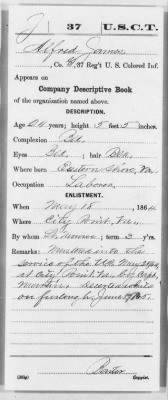 J 37 U.S.C.T.
Alfred James
Co. H, 37 Reg't U. S. Colored Inf.
Appears on
Company Descriptive Book
of the organization named above.
DESCRIPTION.
Age 24 years; height 5 feet 5 inches.
Complexion Blk
Eyes Blk; hair Blk
Where born Eastern Shore, Va
Occupation Laborer
ENLISTMENT.
When May 18, 1864.
Where City Point, Va
By ; term 3 y'rs.
Remarks: Mustered into the
service of the U.S. May
at City Point Va. by Capt.
while
on furlough June
Copyist.